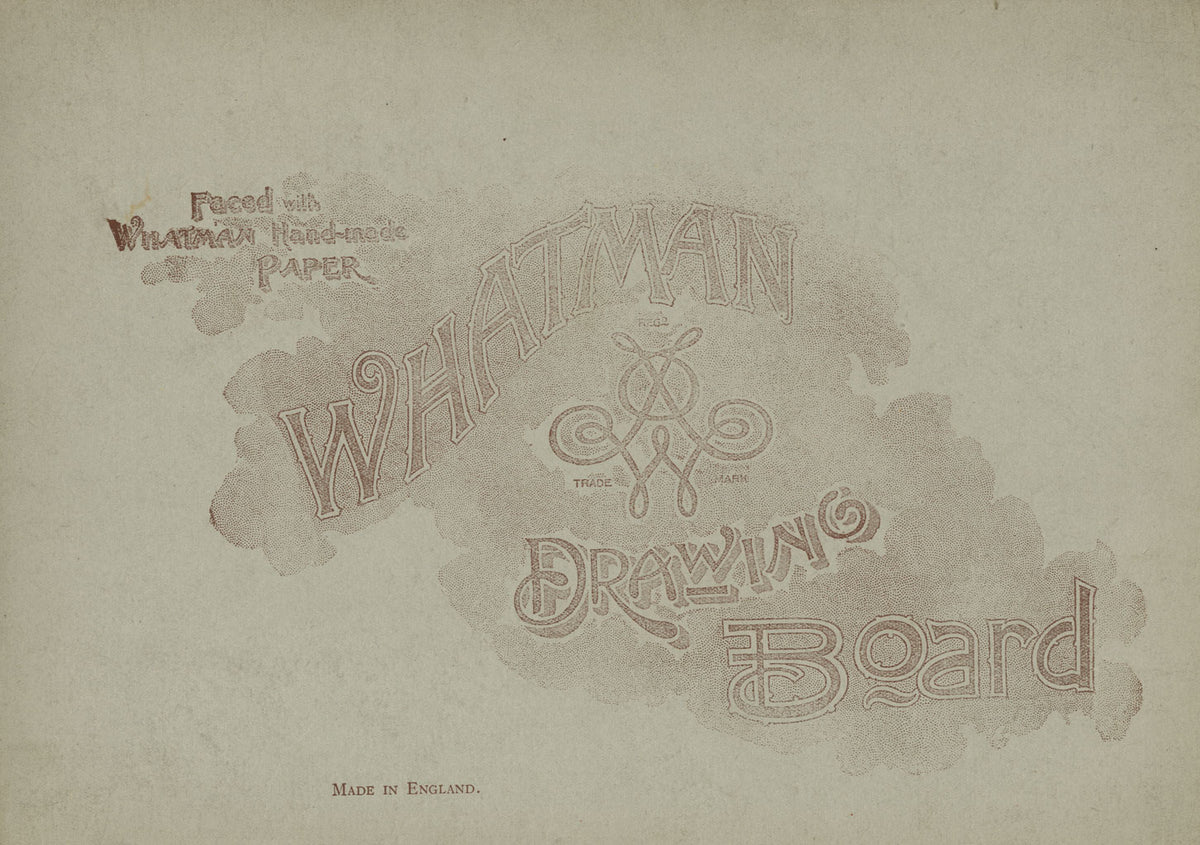 Faced with
WHATMAN Hand-made
PAPER
WHATMAN
REGD
TRADE MARK
DRAWING
Board
MADE IN ENGLAND.